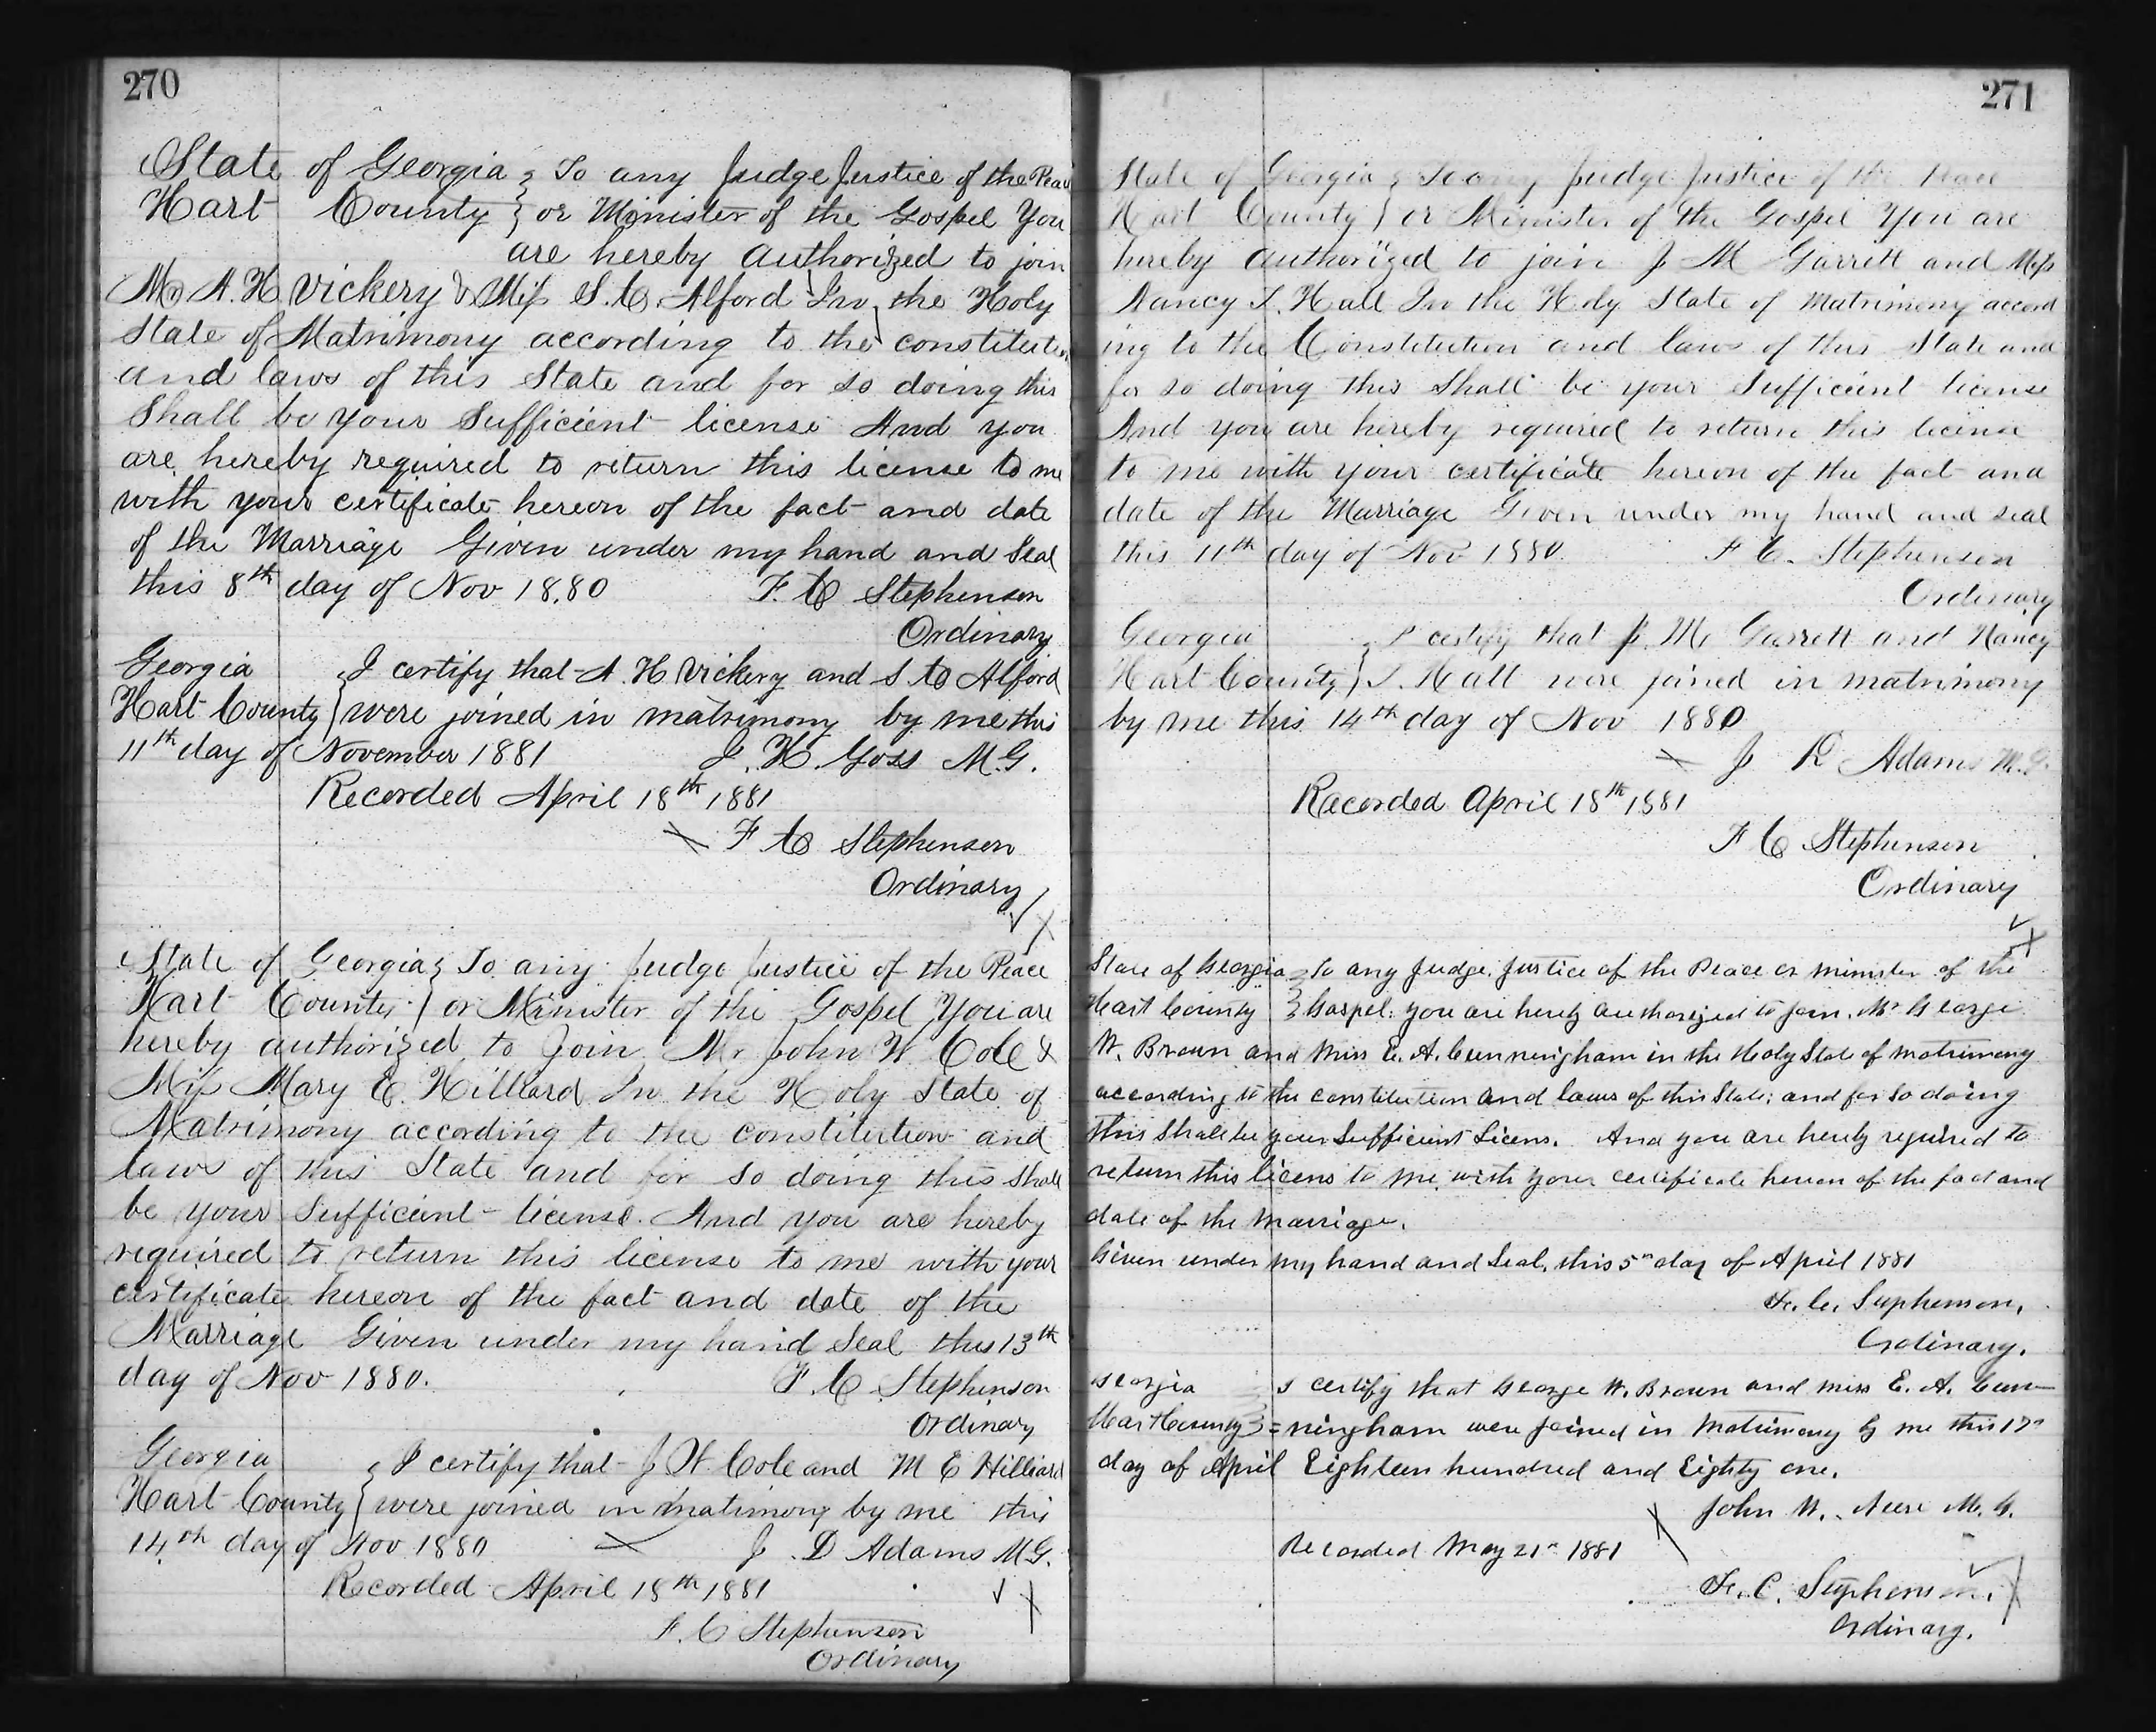 270
State of Georgia } To any Judge Justice of the Peac
Hart County } or Minister of the Gospel You
are hereby authorized to join
Mr A. H. Vickery & Miss S. C Alford In the Holy
State of Matrimony according to the constitution
and laws of this State and for so doing this
Shall be your Sufficient license And you
are hereby required to return this license to me
with your certificate hereon of the fact and date
of the Marriage Given under my hand and Seal
this 8th day of Nov 1880 F. C Stephenson
Ordinary
Georgia } I certify that A. H Vickery and S C Alford
Hart County } were joined in matrimony by me this
11th day of November 1881 J. H. Goss M.G.
Recorded April 18th 1881
F C Stephenson
Ordinary
State of Georgia } To any Judge Justice of the Peace
Hart County } or Minister of the Gospel You are
hereby authorized to join Mr John W Cole &
Miss Mary E. Hilliard In the Holy State of
Matrimony according to the constitution and
laws of this State and for so doing this Shall
be your Sufficient license. And you are hereby
required to return this license to me with your
certificate hereon of the fact and date of the
Marriage Given under my hand Seal this 13th
day of Nov 1880. F. C Stephenson
Ordinary
Georgia } I certify that J W. Cole and M E Hilliard
Hart County } were joined in matrimony by me this
14th day of Nov 1880 J. D Adams M.G.
Recorded April 18th 1881
F. C Stephenson
Ordinary
271
State of Georgia } To any Judge Justice of the Peace
Hart County } or Minister of the Gospel You are
hereby authorized to join J M Garrett and Miss
Nancy Hall In the Holy State of Matrimony accord
ing to the Constitution and laws of this State and
for so doing this Shall be your Sufficient license
And you are hereby required to return this license
to me with your certificate hereon of the fact and
date of the Marriage Given under my hand and seal
this 11th day of Nov 1880. F C. Stephenson
Ordinary
Georgia } I certify that J. M. Garrett and Nancy
Hart County } Hall were joined in matrimony
by me this 14th day of Nov 1880
J Adams M.G.
Recorded April 18th 1881
F C Stephenson
Ordinary
State of Georgia } To any Judge, Justice of the Peace or minister of the
Hart County } Gospel: you are hereby authorized to join, Mr George
W. Brown and Miss E. A. Cunningham in the Holy State of matrimony
according to the constitution and laws of this State; and for so doing
this Shall be your Sufficient Licens. And you are hereby required to
return this licens to me, with your certificate hereon of the fact and
date of the marriage.
Given under my hand and Seal, this 5th day of April 1881
F. C. Stephenson,
Ordinary.
Georgia I certify that George W. Brown and miss E. A. Cun-
Hart County } =ningham were joined in Matrimony by me this 17th
day of April Eighteen hundred and Eighty one.
John W. M. G.
Recorded May 21st 1881
F. C. Stephenson.
Ordinary.